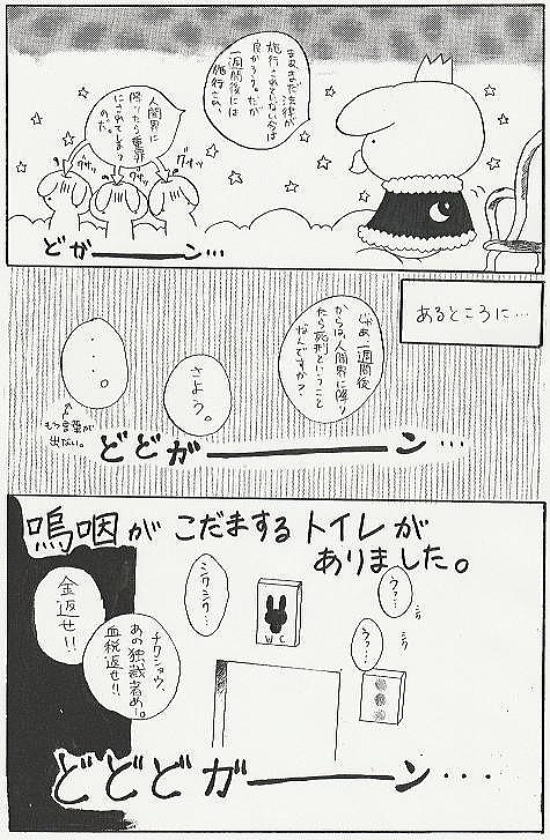 まあまだ法律が
施行されていない今は
良かろう。だが
一週間後には
施行され、
人間界に
降りたら重罪
にされてしまう
のだ。
グサッ
グサッ
グサッ
どかーーーン…
あるところに…
じゃあ、一週間後
からは、人間界に降り
たら死刑ということ
なんですか?
さよう。
・・・。
もう言葉が
出ない。
どどがーーーン…
嗚咽がこだまするトイレが
ありました。
うっ…
シク
うっ…
シク
シクシク…
WC
チクショウ、
あの独裁者め…。
血税返せ!!
金返せ!!
どどどガーーーン・・・